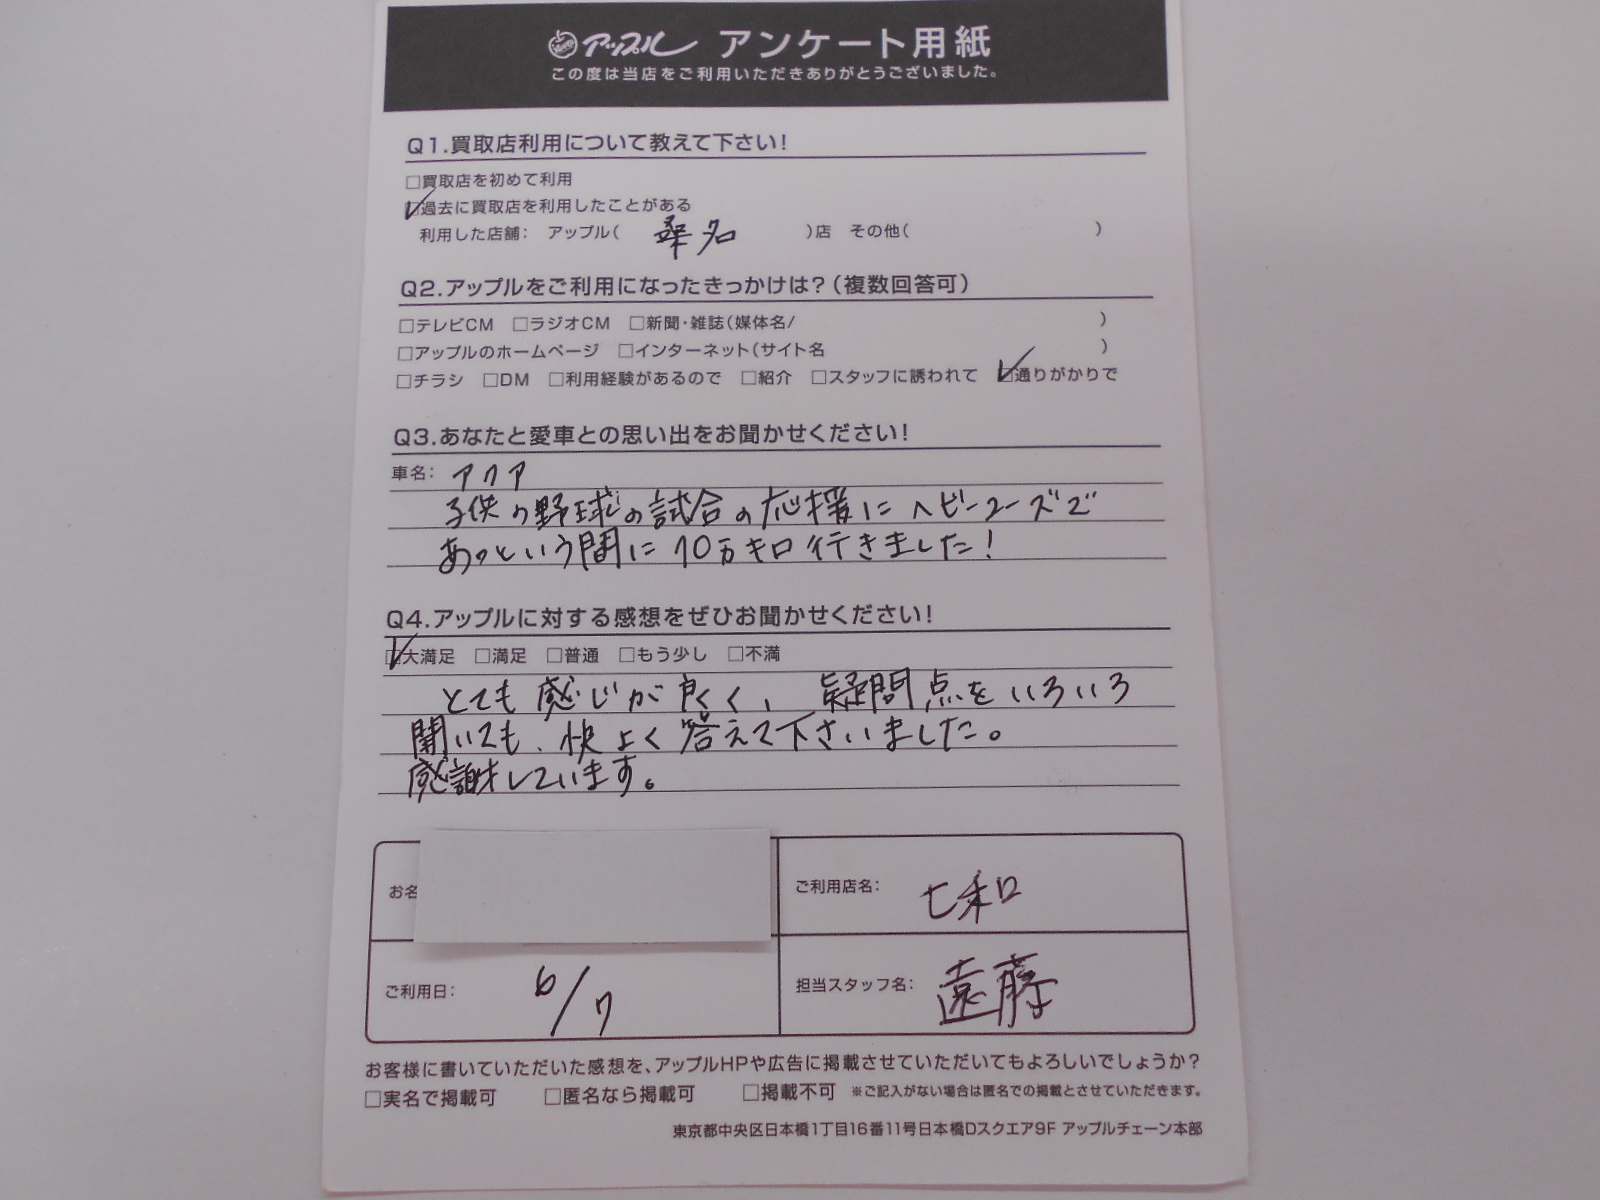 アップル アンケート用紙
この度は当店をご利用いただきありがとうございました。
Q1.買取店利用について教えて下さい!
□買取店を初めて利用
☑過去に買取店を利用したことがある
利用した店舗: アップル( 桑名 )店 その他( )
Q2.アップルをご利用になったきっかけは?(複数回答可)
□テレビCM □ラジオCM □新聞・雑誌(媒体名/ )
□アップルのホームページ □インターネット(サイト名 )
□チラシ □DM □利用経験があるので □紹介 □スタッフに誘われて ☑通りがかりで
Q3.あなたと愛車との思い出をお聞かせください!
車名: アクア
子供の野球の試合の応援にヘビーユーズで
あっという間に10万キロ行きました!
Q4.アップルに対する感想をぜひお聞かせください!
☑大満足 □満足 □普通 □もう少し □不満
とても感じが良く、疑問点をいろいろ
聞いても、快よく答えて下さいました。
感謝しています。
お名
ご利用店名: 七和
ご利用日: 6/7
担当スタッフ名: 遠藤
お客様に書いていただいた感想を、アップルHPや広告に掲載させていただいてもよろしいでしょうか?
□実名で掲載可 □匿名なら掲載可 □掲載不可 ※ご記入がない場合は匿名での掲載とさせていただきます。
東京都中央区日本橋1丁目16番11号日本橋Dスクエア9F アップルチェーン本部